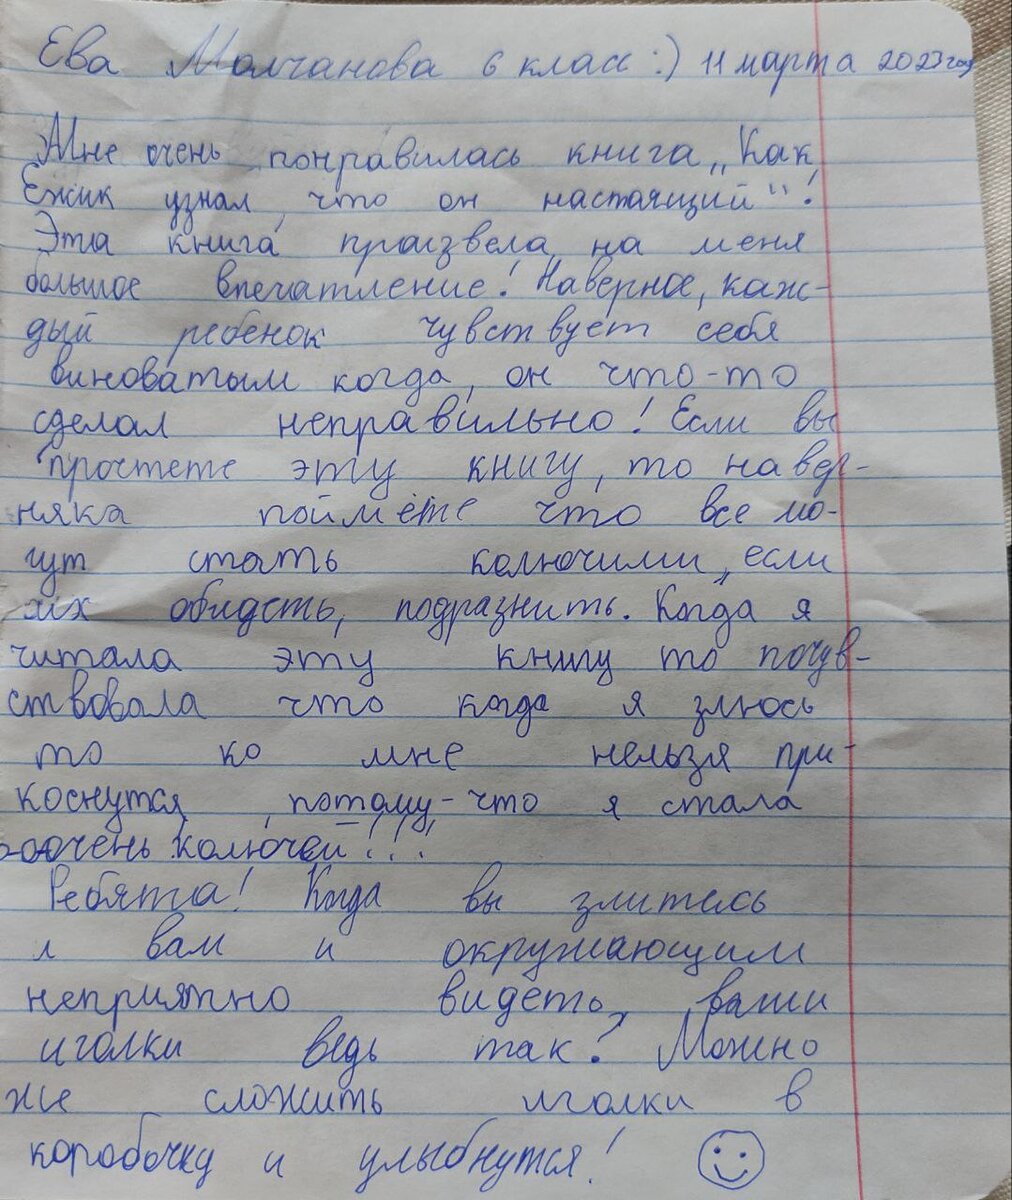 Ева Молчанова 6 класс :) 11 марта 2023 год
Мне очень понравилась книга „Как
Ёжик узнал, что он настоящий“!
Эта книга произвела на меня
большое впечатление! Наверное, каж-
дый ребенок чувствует себя
виноватым когда, он что-то
сделал неправильно! Если вы
прочтете эту книгу, то навер-
няка поймёте что все мо-
гут стать колючими, если
их обидеть, подразнить. Когда я
читала эту книгу то почув-
ствовала что когда я злюсь
то ко мне нельзя при-
коснутся, потому-что я стала
очень колючей!!!
Ребята! Когда вы злитесь
и вам и окружающим
неприятно видеть, ваши
иголки ведь так? Можно
же сложить иголки в
коробочку и улыбнутся!